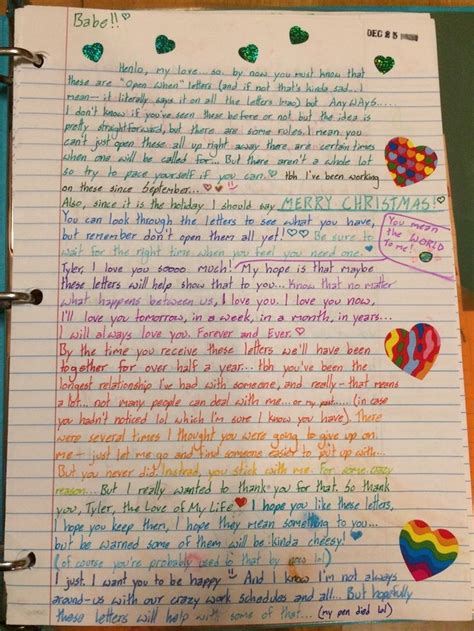 Babe!!
DEC 25
Henlo, my love... so, by now you must know that
these are "Open When" letters (and if not that's kinda sad...I
mean— it literally says it on all the letters lmao) but AnyWAYS.....
I don't know if you've seen these before or not but the idea is
pretty straightforward, but there are some rules. I mean you
can't just open these all up right away there are certain times
when one will be called for... But there aren't a whole lot
so try to pace yourself if you can. tbh I've been working
on these since September...
Also, since it is the holiday I should say MERRY CHRISTMAS!
You can look through the letters to see what you have,
but remember don't open them all yet! Be sure to
wait for the right time when you feel you need one.
You mean
the WORLD
to me!
Tyler, I love you soooo much! My hope is that maybe
these letters will help show that to you... Know that no matter
what happens between us, I love you. I love you now,
I'll love you tomorrow, in a week, in a month, in years...
I will always love you. Forever and Ever.
By the time you receive these letters we'll have been
together for over half a year... tbh you've been the
longest relationship I've had with someone, and really- that means
a lot... not many people can deal with me... or my past..... (in case
you hadn't noticed lol which I'm sure I know you have). There
were several times I thought you were going to give up on
me – just let me go and find someone easier to put up with...
But you never did. Instead, you stick with me. For some crazy
reason... But I really wanted to thank you for that. So thank
you, Tyler, the Love of My Life. I hope you like these letters,
I hope you keep them, I hope they mean something to you...
but be warned some of them will be kinda cheesy!
(of course you're probably used to that by now lol)
I just want you to be happy. And I know I'm not always
around-us with our crazy work schedules and all... But hopefully
these letters will help with some of that... (my pen died lol)